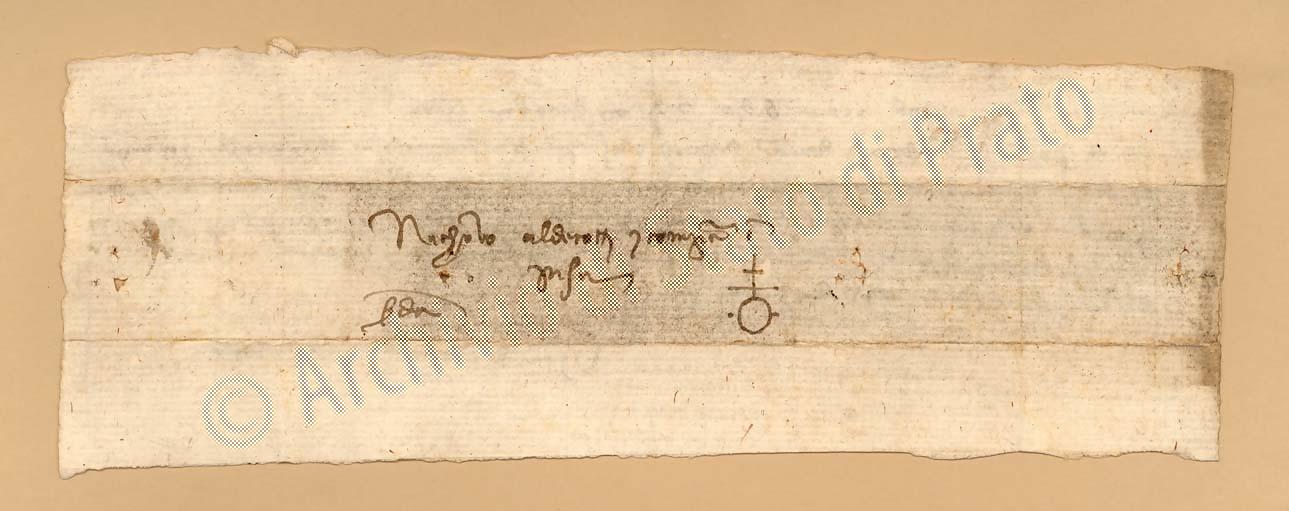 Nicholo alderotti e compagni i
pisa
© Archivio di Stato di Prato